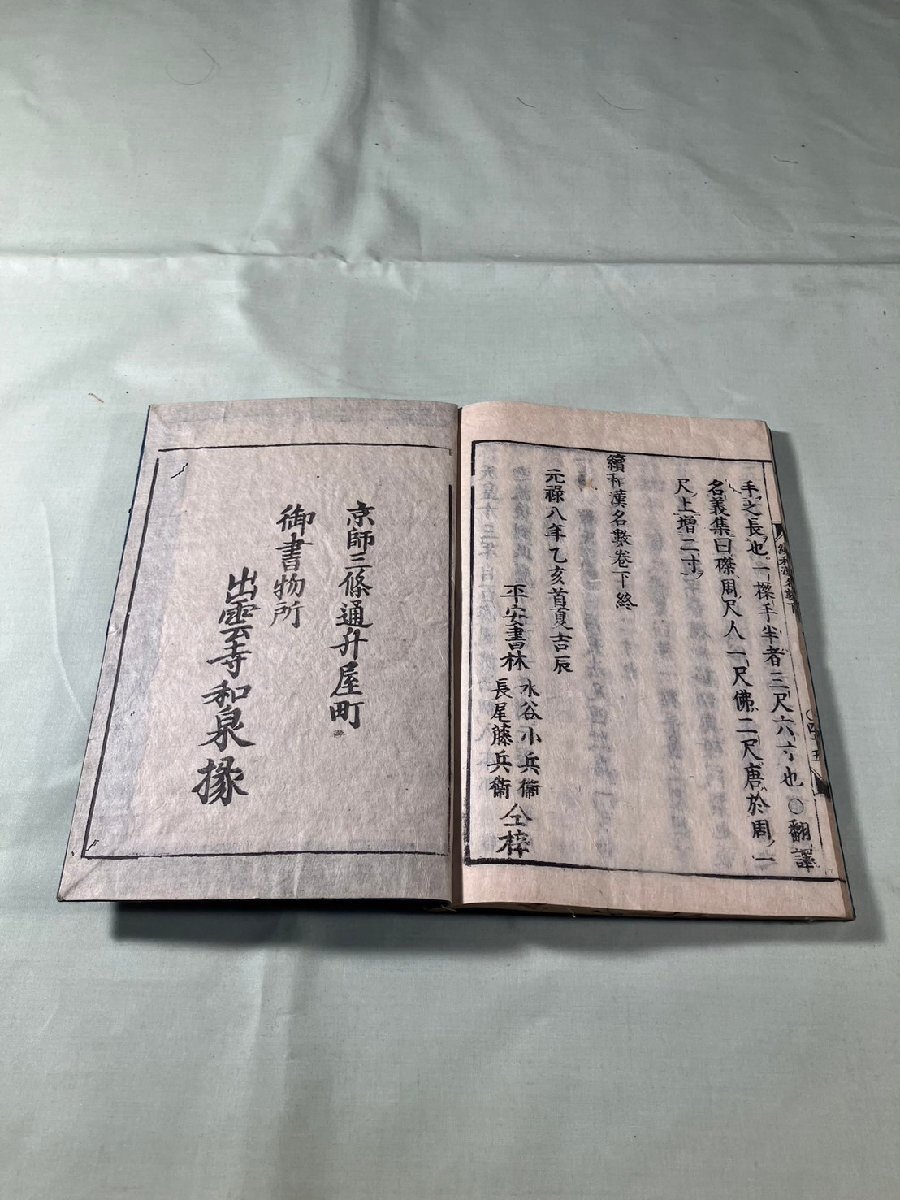 手之長也一磔手半者三尺六寸也○翻譯
名義集曰磔周尺人一尺佛二尺唐於周一
尺上增二寸
續和漢名數卷下終
元禄八年乙亥首夏吉辰
平安書林
水谷小兵衛
長尾藤兵衛
仝梓
京師三條通升屋町
御書物所
出雲寺和泉掾